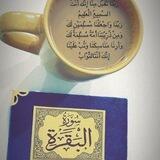 ربنا تقبل منا إنك أنت
السميع العليم
ربنا واجعلنا مسلمين لك
ومن ذريتنا أمة مسلمة لك
وأرنا مناسكنا وتب علينا
إنك أنت التواب
سورة
البقرة